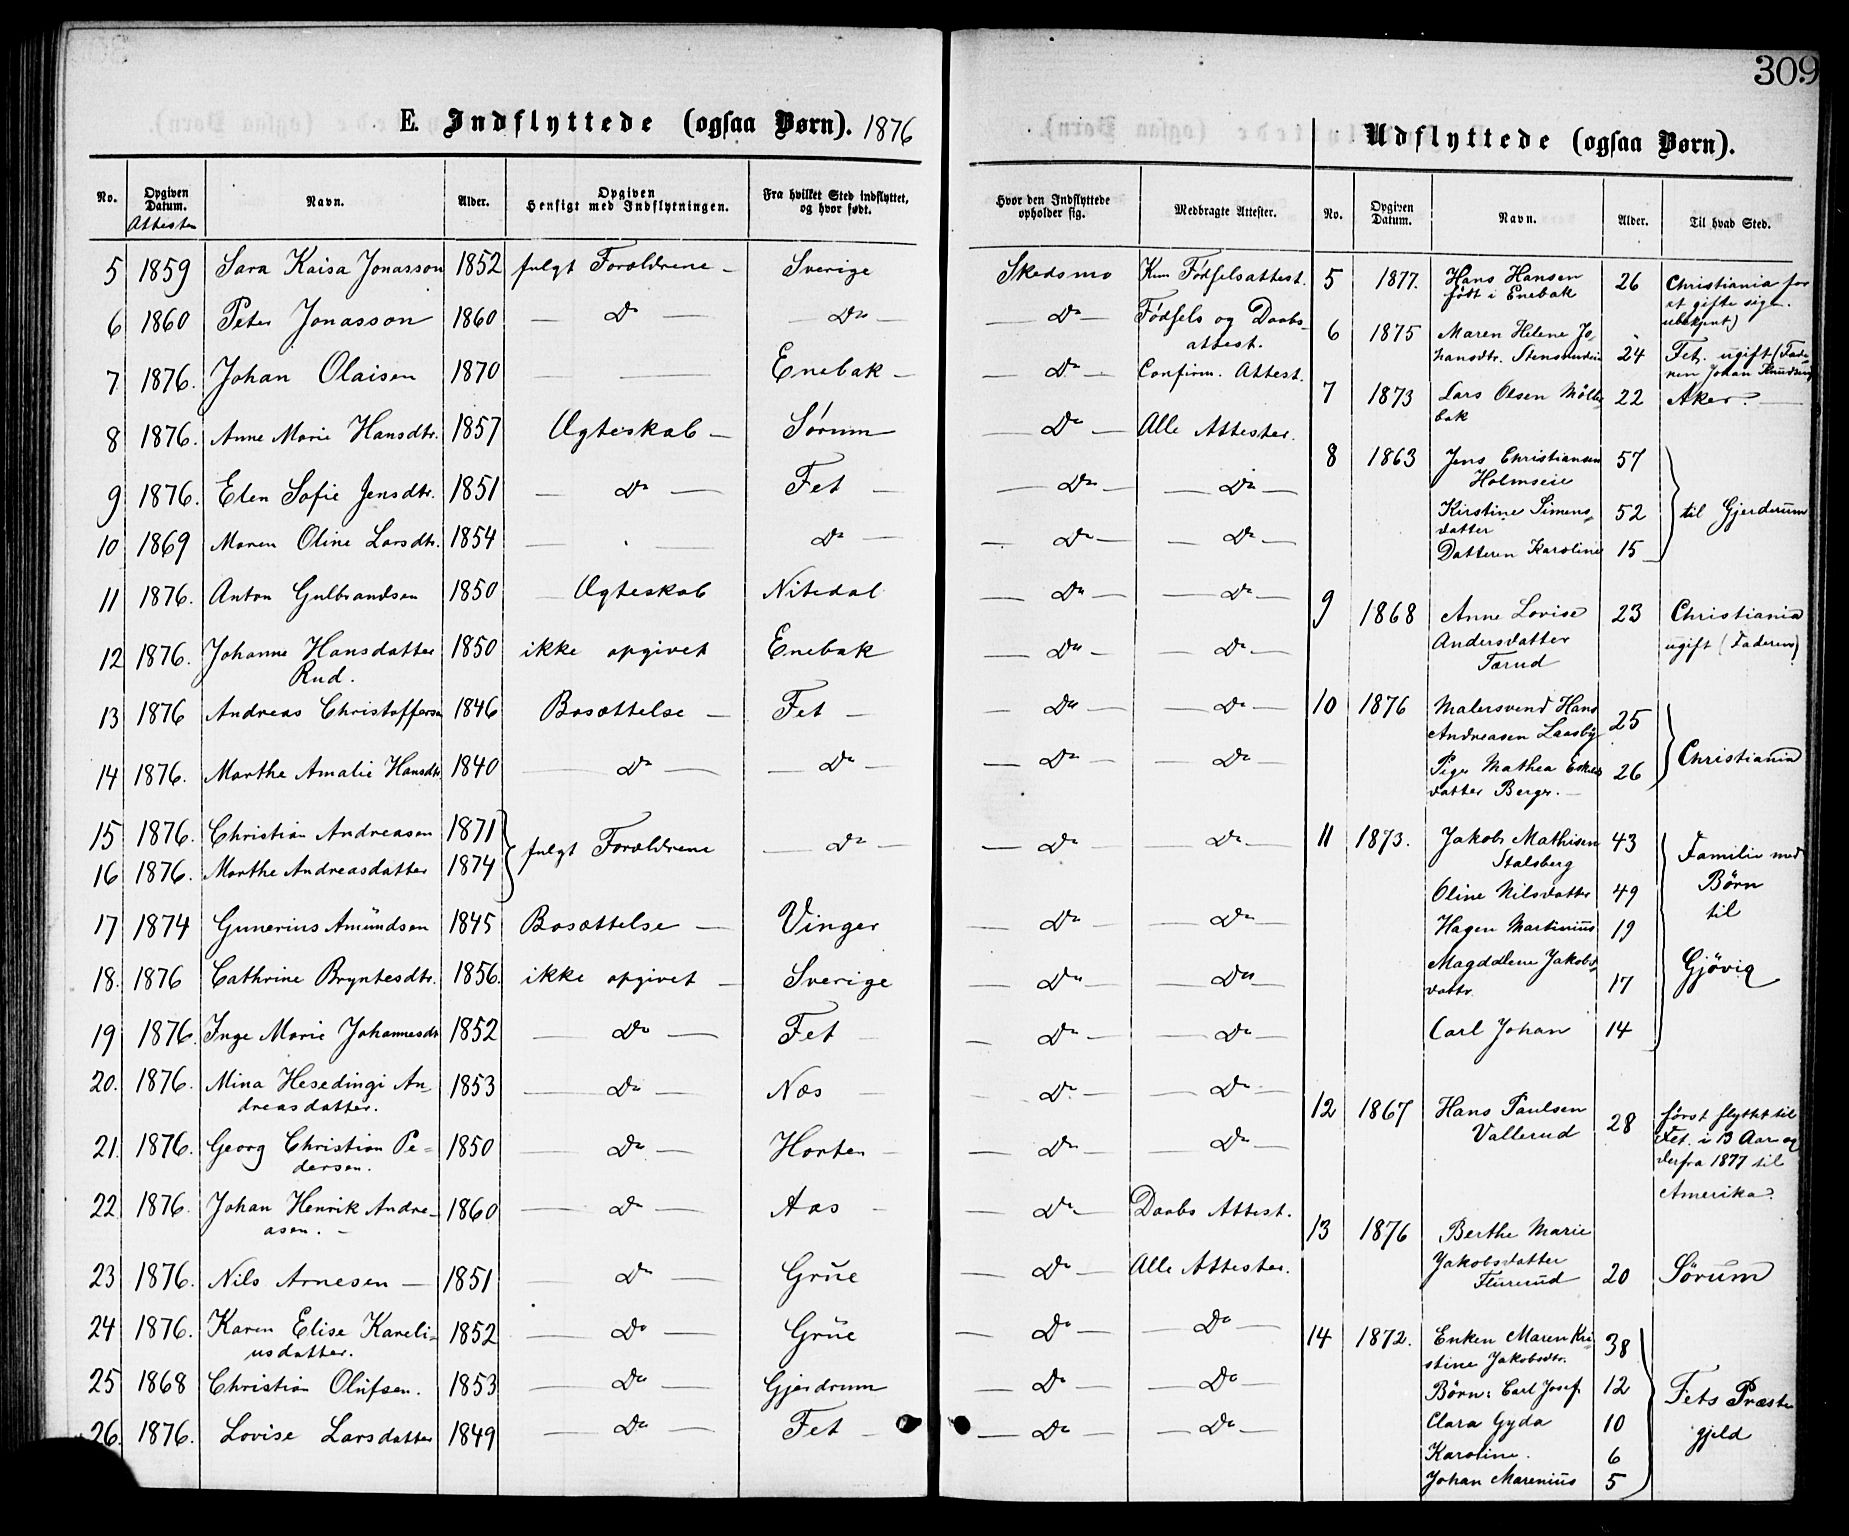 309
E. Indflyttede (ogsaa Børn). 1876
No. | Opgiven Datum. Attesten | Navn. | Alder. | Opgiven Hensigt med Indflytningen. | Fra hvilket Sted indflyttet, og hvor født. | Hvor den Indflyttede opholder sig. | Medbragte Attester.
5 | 1859 | Sara Kaisa Jonasson | 1852 | fulgt Forældrene – | Sverige | Skedsmo | Kun Fødselsattest.
6 | 1860 | Peter Jonasson | 1860 | – Do – | – Do – | – Do – | Fødsels og Daabs-
attest.
7 | 1876. | Johan Olaisen | 1870 | – – | Enebak – | – Do – | Confirm. Attest.
8 | 1876. | Anne Marie Hansdtr. | 1857 | Ægteskab – | Sørum | – Do – | Alle Attester.
9 | 1876. | Elen Sofie Jensdtr. | 1851 | – Do – | Fet – | – Do – | – Do –
10 | 1869 | Maren Oline Larsdtr. | 1854 | – . – | Do – | – Do – | – Do –
11 | 1876. | Anton Gulbrandsen | 1850 | – Ægteskab | Nitedal | – Do – | – Do –
12 | 1876. | Johanne Hansdatter | 1850 | ikke opgivet | Enebak | – Do – | – Do –
Rud.
13 | 1876 | Andreas Christoffersen | 1846 | Bosættelse – | Fet – | – Do – | – Do –
14 | 1876. | Marthe Amalie Hansdtr | 1840 | – Do – | – Do – | – Do – | – Do –
15 | 1876. | Christian Andreasen | 1871 | } fulgt Forældrene | – Do – | – Do – | – Do –
16 | 1876. | Marthe Andreasdatter | 1874
17 | 1874 | Gunerius Amundsen | 1845 | Bosættelse – | Vinger | – Do – | – Do –
18. | 1876 | Cathrine Bryntesdtr. | 1856. | ikke opgivet – | Sverige | – Do – | – Do –
19 | 1876. | Inge Marie Johannesdtr | 1852 | – Do – | Fet – | – Do – | – Do –
20. | 1876. | Mina Hesedingi An- | 1853 | – Do – | Næs – | – Do – | – Do –
dreasdatter.
21. | 1876. | Georg Christian Pe- | 1850 | – Do – | Horten – | – Do – | – Do –
dersen.
22 | 1876. | Johan Henrik Andre- | 1860 | – Do – | Aas – | – Do – | Daabs Attest.
asen. –
23 | 1876. | Nils Arnesen – | 1851 | – Do – | Grue | – Do – | Alle Attester.
24 | 1876. | Karen Elise Kareli- | 1852 | – Do – | Grue | – Do – | – Do –
usdatter.
25 | 1868 | Christian Olufsen. | 1853 | – Do – | Gjerdrum | – Do – | – Do –
26. | 1876. | Lovise Larsdatter | 1849 | – Do – | Fet – | – Do – | – Do –
Udflyttede (ogsaa Børn).
No. | Opgiven Datum. | Navn. | Alder. | Til hvad Sted.
5 | 1877. | Hans Hansen | 26 | Christiania for
født i Enebak | at gifte sig.
ubekjent)
6 | 1875 | Maren Helene Jo-
hansdtr. | 24 | Fet. ugift (Fade-
ren Johan Knudsen)
7 | 1873 | Lars Olsen Mölle- | 22 | Aker. –
bak
8 | 1863 | Jens Christiansen | 57
Holmseie
Kirstine Simens- | 52 | } til Gjerderum
datter
Datteren Karoline | 15
9 | 1868 | Anne Lovise | 23 | Christiania
Andersdatter | ugift (Faderens)
Tærud
10 | 1876 | Malersvend Hans | 25
Andreasen Laasby | } Christiania
Pige Mathea | 26
datter Berger. –
11 | 1873. | Jakob Mathisen | 43 | Familie med
Stalsberg | Børn
Oline Nilsdatter | 49 | til
Hagen Martinius | 19
Magdalene Jakobs- | 17 | Gjövig
dattr.
Carl Johan | 14
12 | 1867 | Hans Paulsen | 28 | først flyttet til
Vallerud | Fet. i 13 Aar og
derfra 1877 til
Amerika.
13 | 1876 | Berthe Marie
Jakobsdatter | 20 | Sørum
14 | 1872. | Enken Maren Kri- | 38
stine Jakobsdtr.
Børn: Carl Josef | 12 | } Fets Præste
Clara Gyda | 10 | gjeld
Karoline. | 6
Johan Marenius | 5